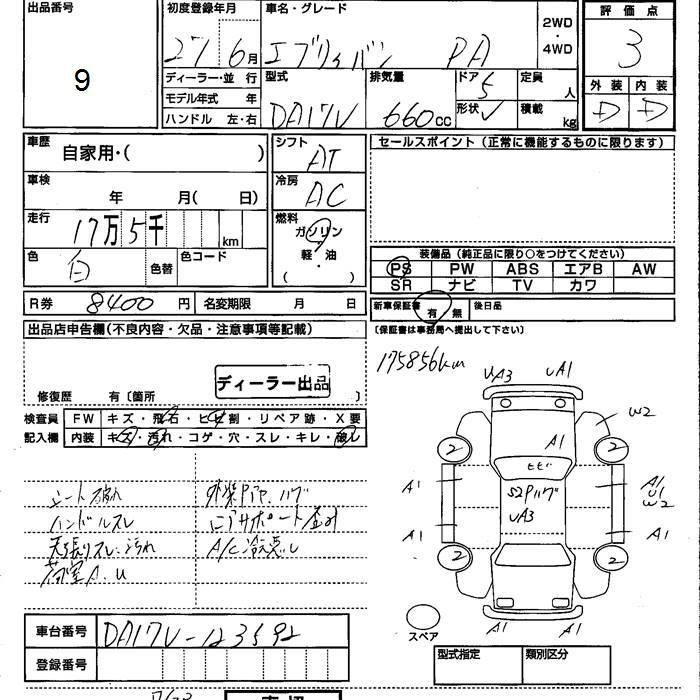 出品番号
9
初度登録年月
27 6月
車名・グレード
エブリィバン PA
2WD
・
4WD
評価点
3
外装 内装
D D
ディーラー・並 行
モデル年式 年
ハンドル 左・右
型式
DA17V
排気量
660cc
ドア 5
形状 V
定員 人
積載 kg
車歴
自家用・( )
シフト
AT
車検
年 月( 日)
冷房
AC
走行
17万5千 km
燃料
ガソリン
・
軽・油
( )
色
白
色替
色コード
R券 8400円 名変期限 月 日
セールスポイント (正常に機能するものに限ります)
装備品 (純正品に限り○をつけてください)
PS PW ABS エアB AW
SR ナビ TV カワ
新車保証書 有・無 後日品
(保証書は事務局へ提出して下さい)
出品店申告欄 (不良内容・欠品・注意事項等記載)
ディーラー出品
修復歴 有〔箇所 〕
検査員 FW キズ・飛石・ヒビ割・リペア跡・X要
記入欄 内装 キズ・汚れ・コゲ・穴・スレ・キレ・破レ
シート破れ
ハンドルスレ
天張りスレ・汚れ
荷室A.U
175856km
UA3 UA1
W2
A1
2 2
ヒビ
A1 A1
U1
W2
UA3
A1 A1
2 2
A1 A1
スペア
車台番号 DA17V-123592
登録番号
型式指定 類別区分